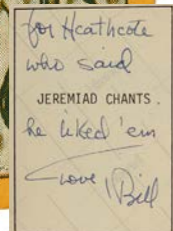 for Heathcote
who said
JEREMIAD CHANTS.
he liked 'em
Love, Bill